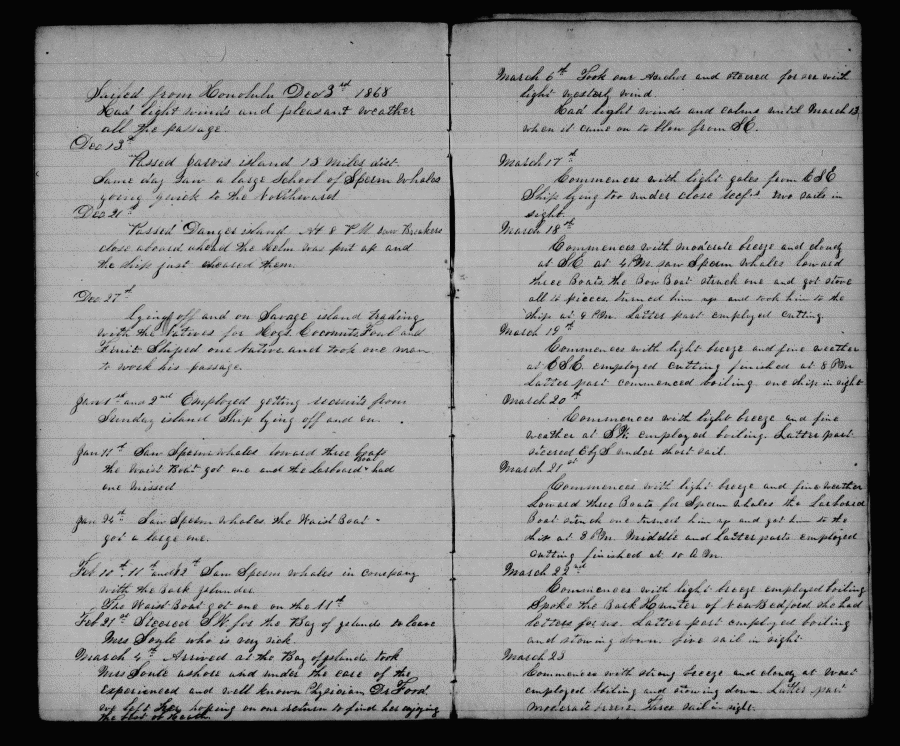 Sailed from Honolulu Dec 3rd 1868
Had light winds and pleasant weather
all the passage.
Dec 13th
Passed Jarvis island 15 miles dist.
Same day saw a large School of Sperm Whales
going quick to the Northward
Dec 21st
Passed Danger island At 8 P.M. saw Breakers
close aboard ahead the helm was put up and
the ship just cleared them.
Dec 27th
lying off and on Savage island trading
with the Natives for Hogs Cocoanuts Fowl and
Fruit Shiped one Native and took one man
to work his passage.
Jan 1st and 2nd Employed getting recruits from
Sunday island Ship lying off and on.
Jan 11th Saw Sperm whales lowered three boats
the Waist Boat got one and the Larboard Boat had
one missed
Jan 24th Saw Sperm whales, the Waist Boat
got a large one.
Feb 10th, 11th and 12th Saw Sperm whales in company
with the bark Islander
The Waist Boat got one on the 11th
Feb 21st Steered SW for the Bay of Islands to leave
Mrs Soule who is very sick
March 4th Arrived at the Bay of Islands took
Mrs Soule ashore and under the care of the
experienced and well known Physician Dr Ford.
we left her hoping on our return to find her enjoying
the best of health.
March 6th Took our Anchor and steered for sea with
light westerly wind.
Had light winds and calms until March 13
when it came on to blow from SE.
March 17th
Commences with light gales from ESE
Ship lying too under close reefs two sails in
sight.
March 18th
Commences with moderate breeze and cloudy
at SE at 4 PM saw Sperm whales lowered
three Boats the Bow Boat struck one and got stove
all to pieces turned him up and took him to the
ship at 9 PM. Latter part employed cutting.
March 19th
Commences with light breeze and fine weather
at ESE employed cutting finished at 8 PM
Latter part commenced boiling one ship in sight
March 20th
Commences with light breeze and fine
weather at SW. employed boiling. Latter part
steered EbyS under short sail.
March 21st
Commences with light breeze and fine weather
Lowered three Boats for Sperm whales the Larboard
Boat struck one turned him up and got him to the
ship at 3 PM. Middle and Latter parts employed
cutting finished at 10 A.M.
March 22nd
Commences with light breeze employed boiling
Spoke the Bark Hunter of New Bedford she had
letters for us. Latter part employed boiling
and stowing down. five sail in sight.
March 23
Commences with strong breeze and cloudy at West
employed boiling and stowing down. Latter part
moderate breeze. Three sail in sight.